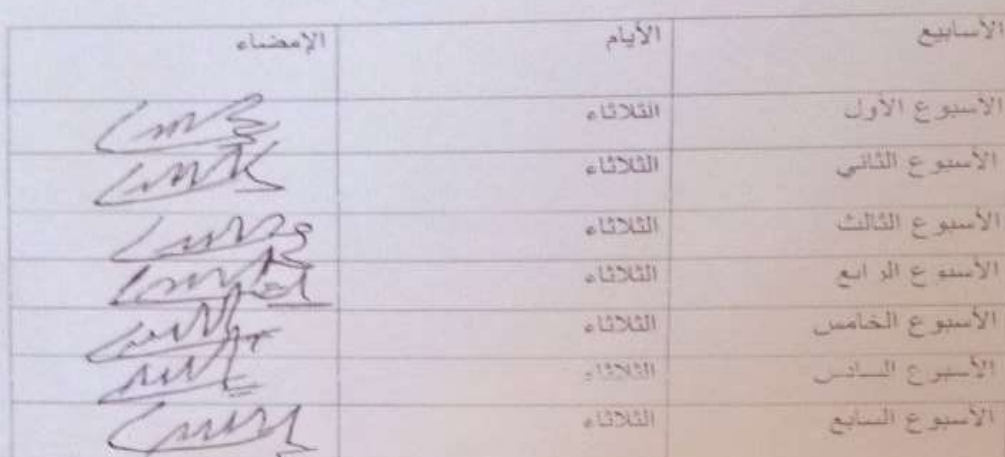 الأسابيع الأيام الإمضاء
الأسبوع الأول الثلاثاء
الأسبوع الثاني الثلاثاء
الأسبوع الثالث الثلاثاء
الأسبوع الرابع الثلاثاء
الأسبوع الخامس الثلاثاء
الأسبوع السادس الثلاثاء
الأسبوع السابع الثلاثاء